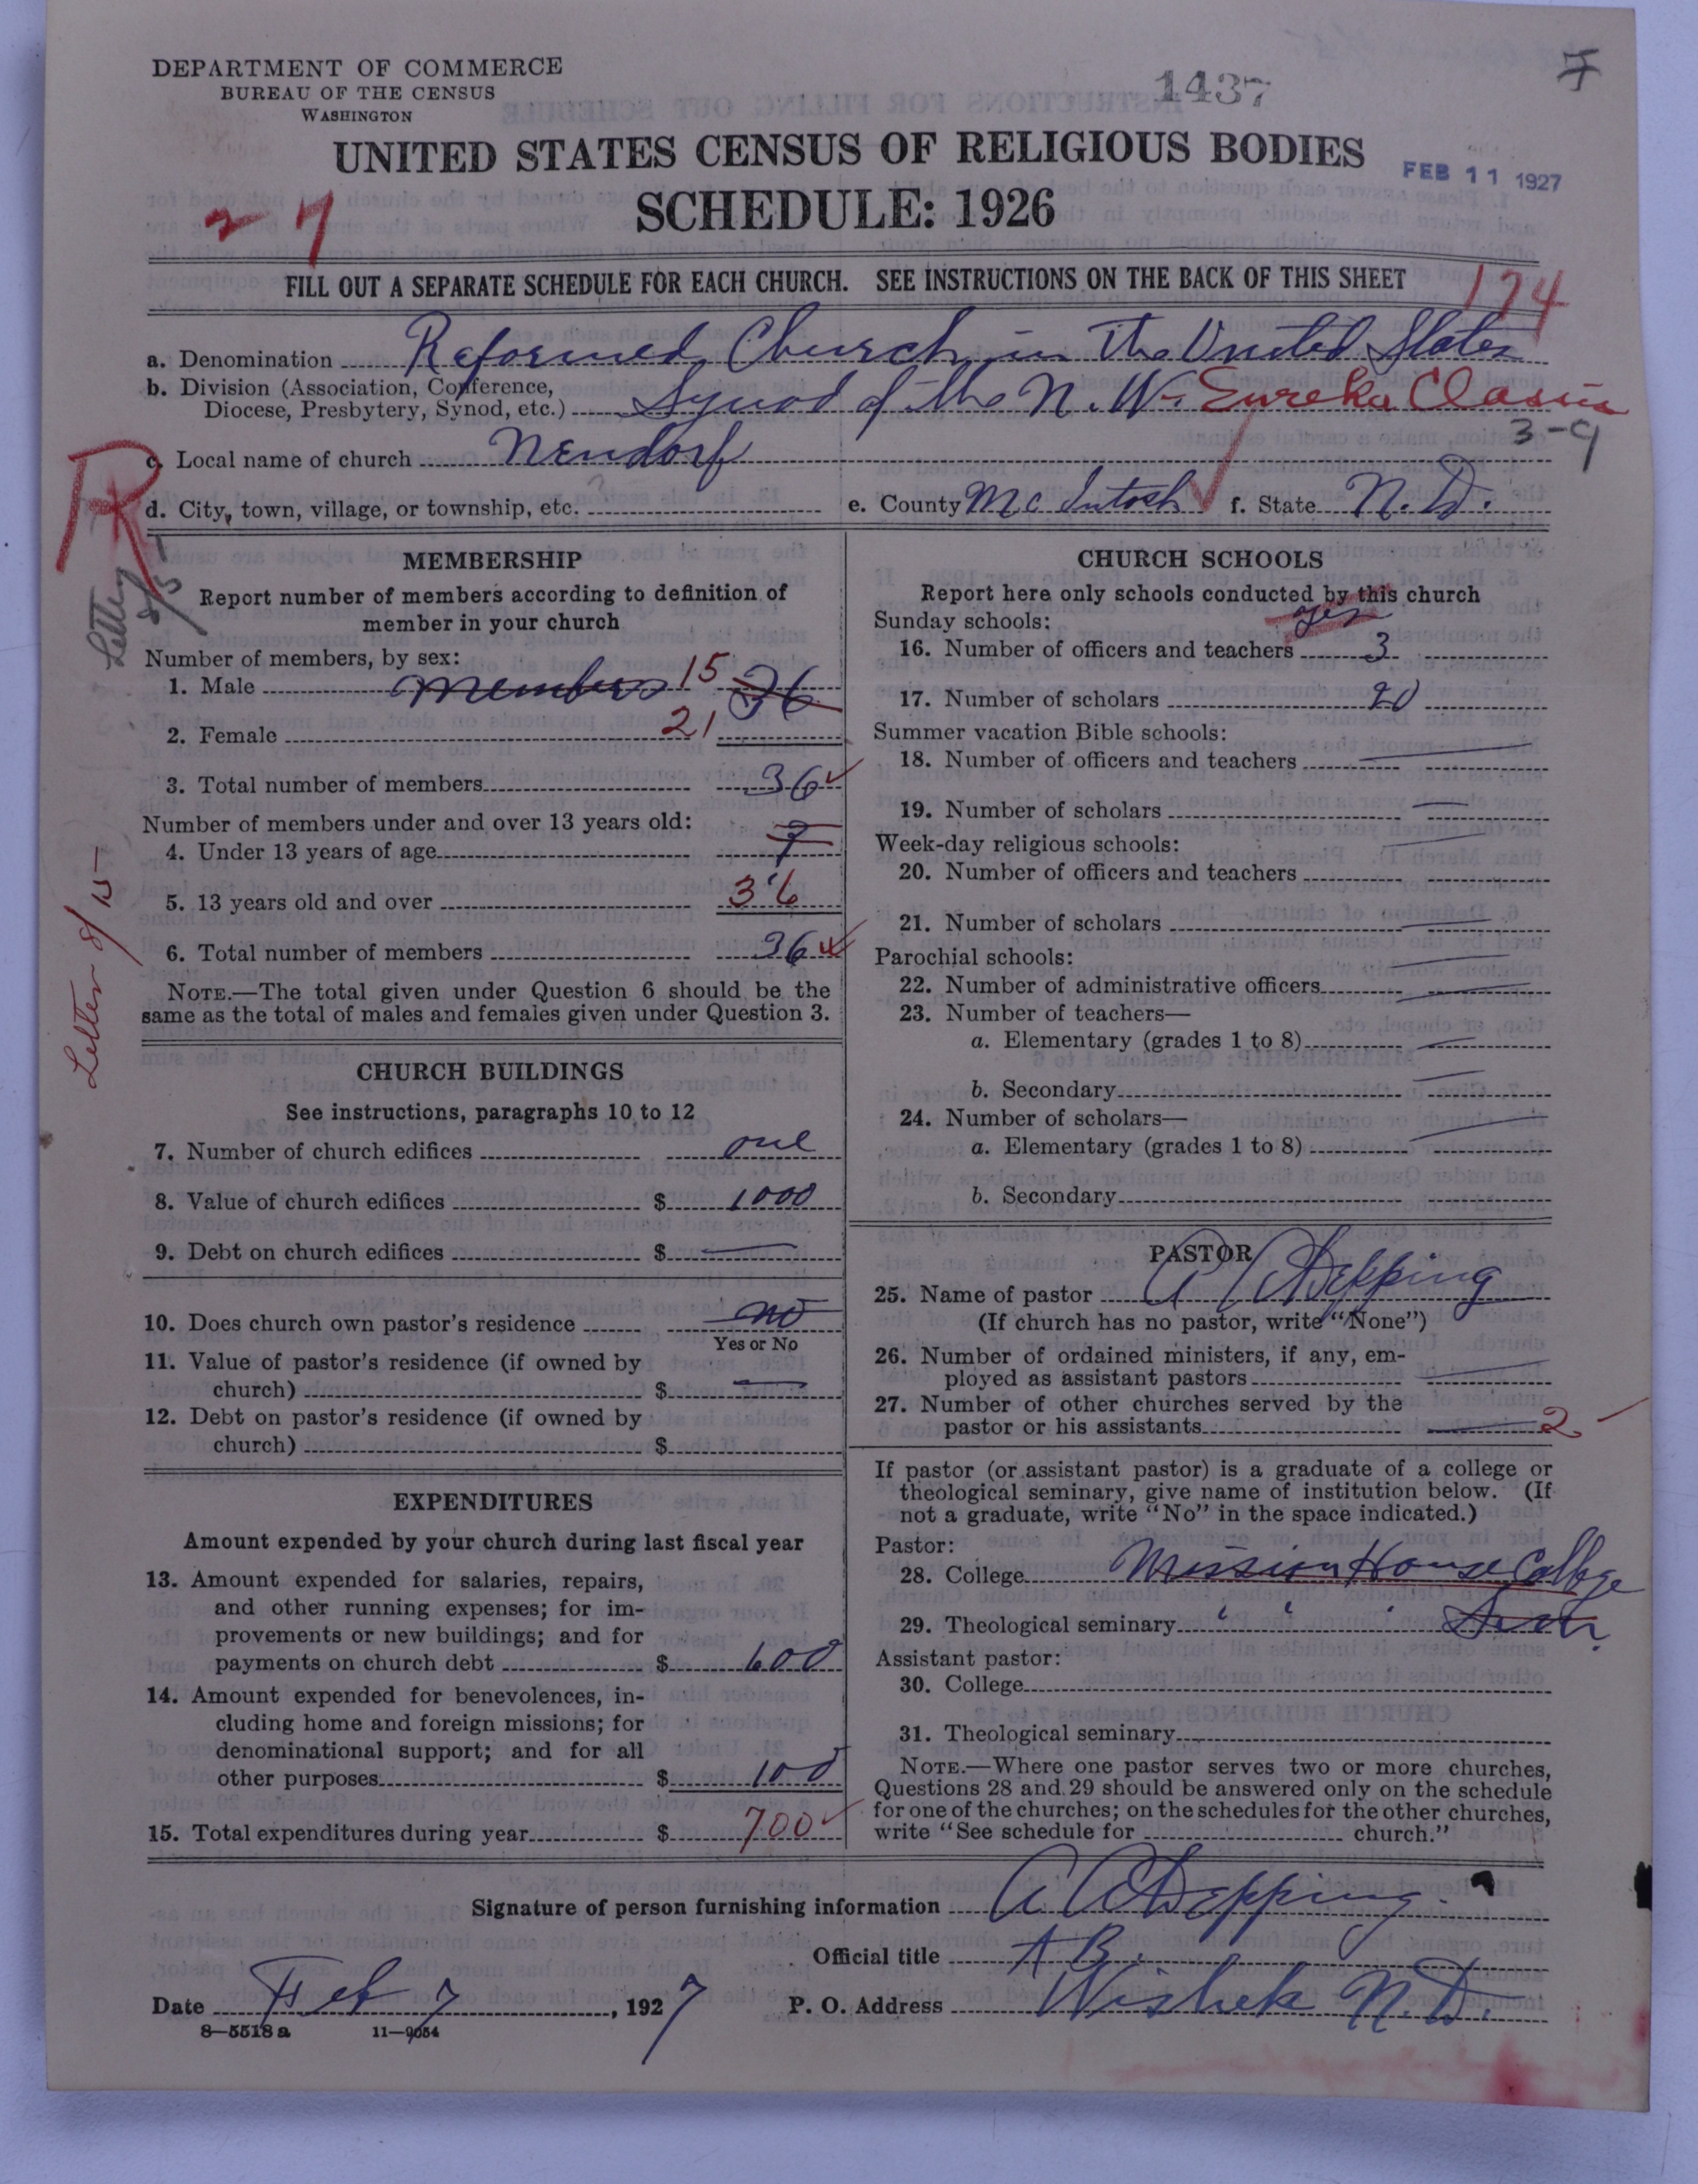 DEPARTMENT OF COMMERCE
BUREAU OF THE CENSUS
WASHINGTON
1437
UNITED STATES CENSUS OF RELIGIOUS BODIES
FEB 11 1927
SCHEDULE: 1926
27
FILL OUT A SEPARATE SCHEDULE FOR EACH CHURCH. SEE INSTRUCTIONS ON THE BACK OF THIS SHEET
174
a. Denomination Reformed Church in the United States
b. Division (Association, Conference,
Diocese, Presbytery, Synod, etc.) Synod of the N.W. Eureka Classis
3-9
c. Local name of church Neudorf
R
d. City, town, village, or township, etc.
e. County McIntosh f. State N.D.
Letter 8/5
MEMBERSHIP
Report number of members according to definition of
member in your church
Number of members, by sex:
1. Male members 15 36
2. Female 21
3. Total number of members 36
Number of members under and over 13 years old:
4. Under 13 years of age
5. 13 years old and over 36
6. Total number of members 36
NOTE.—The total given under Question 6 should be the
same as the total of males and females given under Question 3.
Letter 8/15
CHURCH BUILDINGS
See instructions, paragraphs 10 to 12
7. Number of church edifices one
8. Value of church edifices $ 1000
9. Debt on church edifices $ —
10. Does church own pastor's residence no
Yes or No
11. Value of pastor's residence (if owned by
church) $ —
12. Debt on pastor's residence (if owned by
church) $
EXPENDITURES
Amount expended by your church during last fiscal year
13. Amount expended for salaries, repairs,
and other running expenses; for im-
provements or new buildings; and for
payments on church debt $ 600
14. Amount expended for benevolences, in-
cluding home and foreign missions; for
denominational support; and for all
other purposes $ 100
15. Total expenditures during year $ 700
CHURCH SCHOOLS
Report here only schools conducted by this church
Sunday schools: yes
16. Number of officers and teachers 3
17. Number of scholars 20
Summer vacation Bible schools:
18. Number of officers and teachers —
19. Number of scholars —
Week-day religious schools: —
20. Number of officers and teachers
21. Number of scholars —
Parochial schools: —
22. Number of administrative officers —
23. Number of teachers—
a. Elementary (grades 1 to 8) —
b. Secondary —
24. Number of scholars— —
a. Elementary (grades 1 to 8)
b. Secondary
PASTOR
25. Name of pastor A C Depping
(If church has no pastor, write "None")
26. Number of ordained ministers, if any, em-
ployed as assistant pastors —
27. Number of other churches served by the
pastor or his assistants — 2
If pastor (or assistant pastor) is a graduate of a college or
theological seminary, give name of institution below. (If
not a graduate, write "No" in the space indicated.)
Pastor:
28. College Mission House College
29. Theological seminary " " " Sem.
Assistant pastor:
30. College
31. Theological seminary
NOTE.—Where one pastor serves two or more churches,
Questions 28 and 29 should be answered only on the schedule
for one of the churches; on the schedules for the other churches,
write "See schedule for church."
Signature of person furnishing information A C Depping
Official title A B.
Date Feb 7, 1927 P. O. Address Wishek N.D.
8—5518 a 11—9054